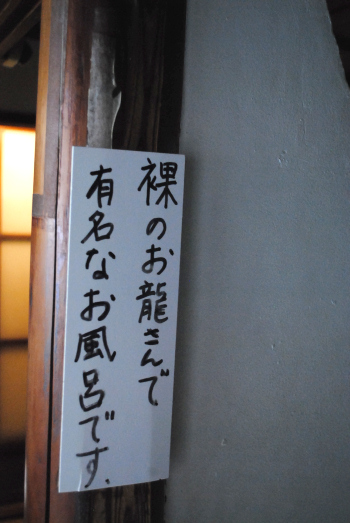 裸のお龍さんで
有名なお風呂です。